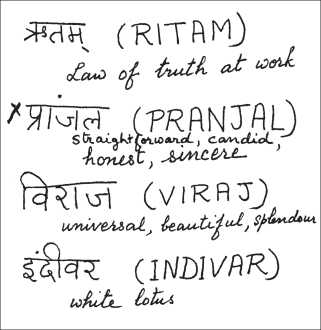 ऋतम् (RITAM)
Law of truth at work
x प्रांजल (PRANJAL)
straightforward, candid,
honest, sincere
विराज (VIRAJ)
universal, beautiful, splendour
इंदीवर (INDIVAR)
white lotus